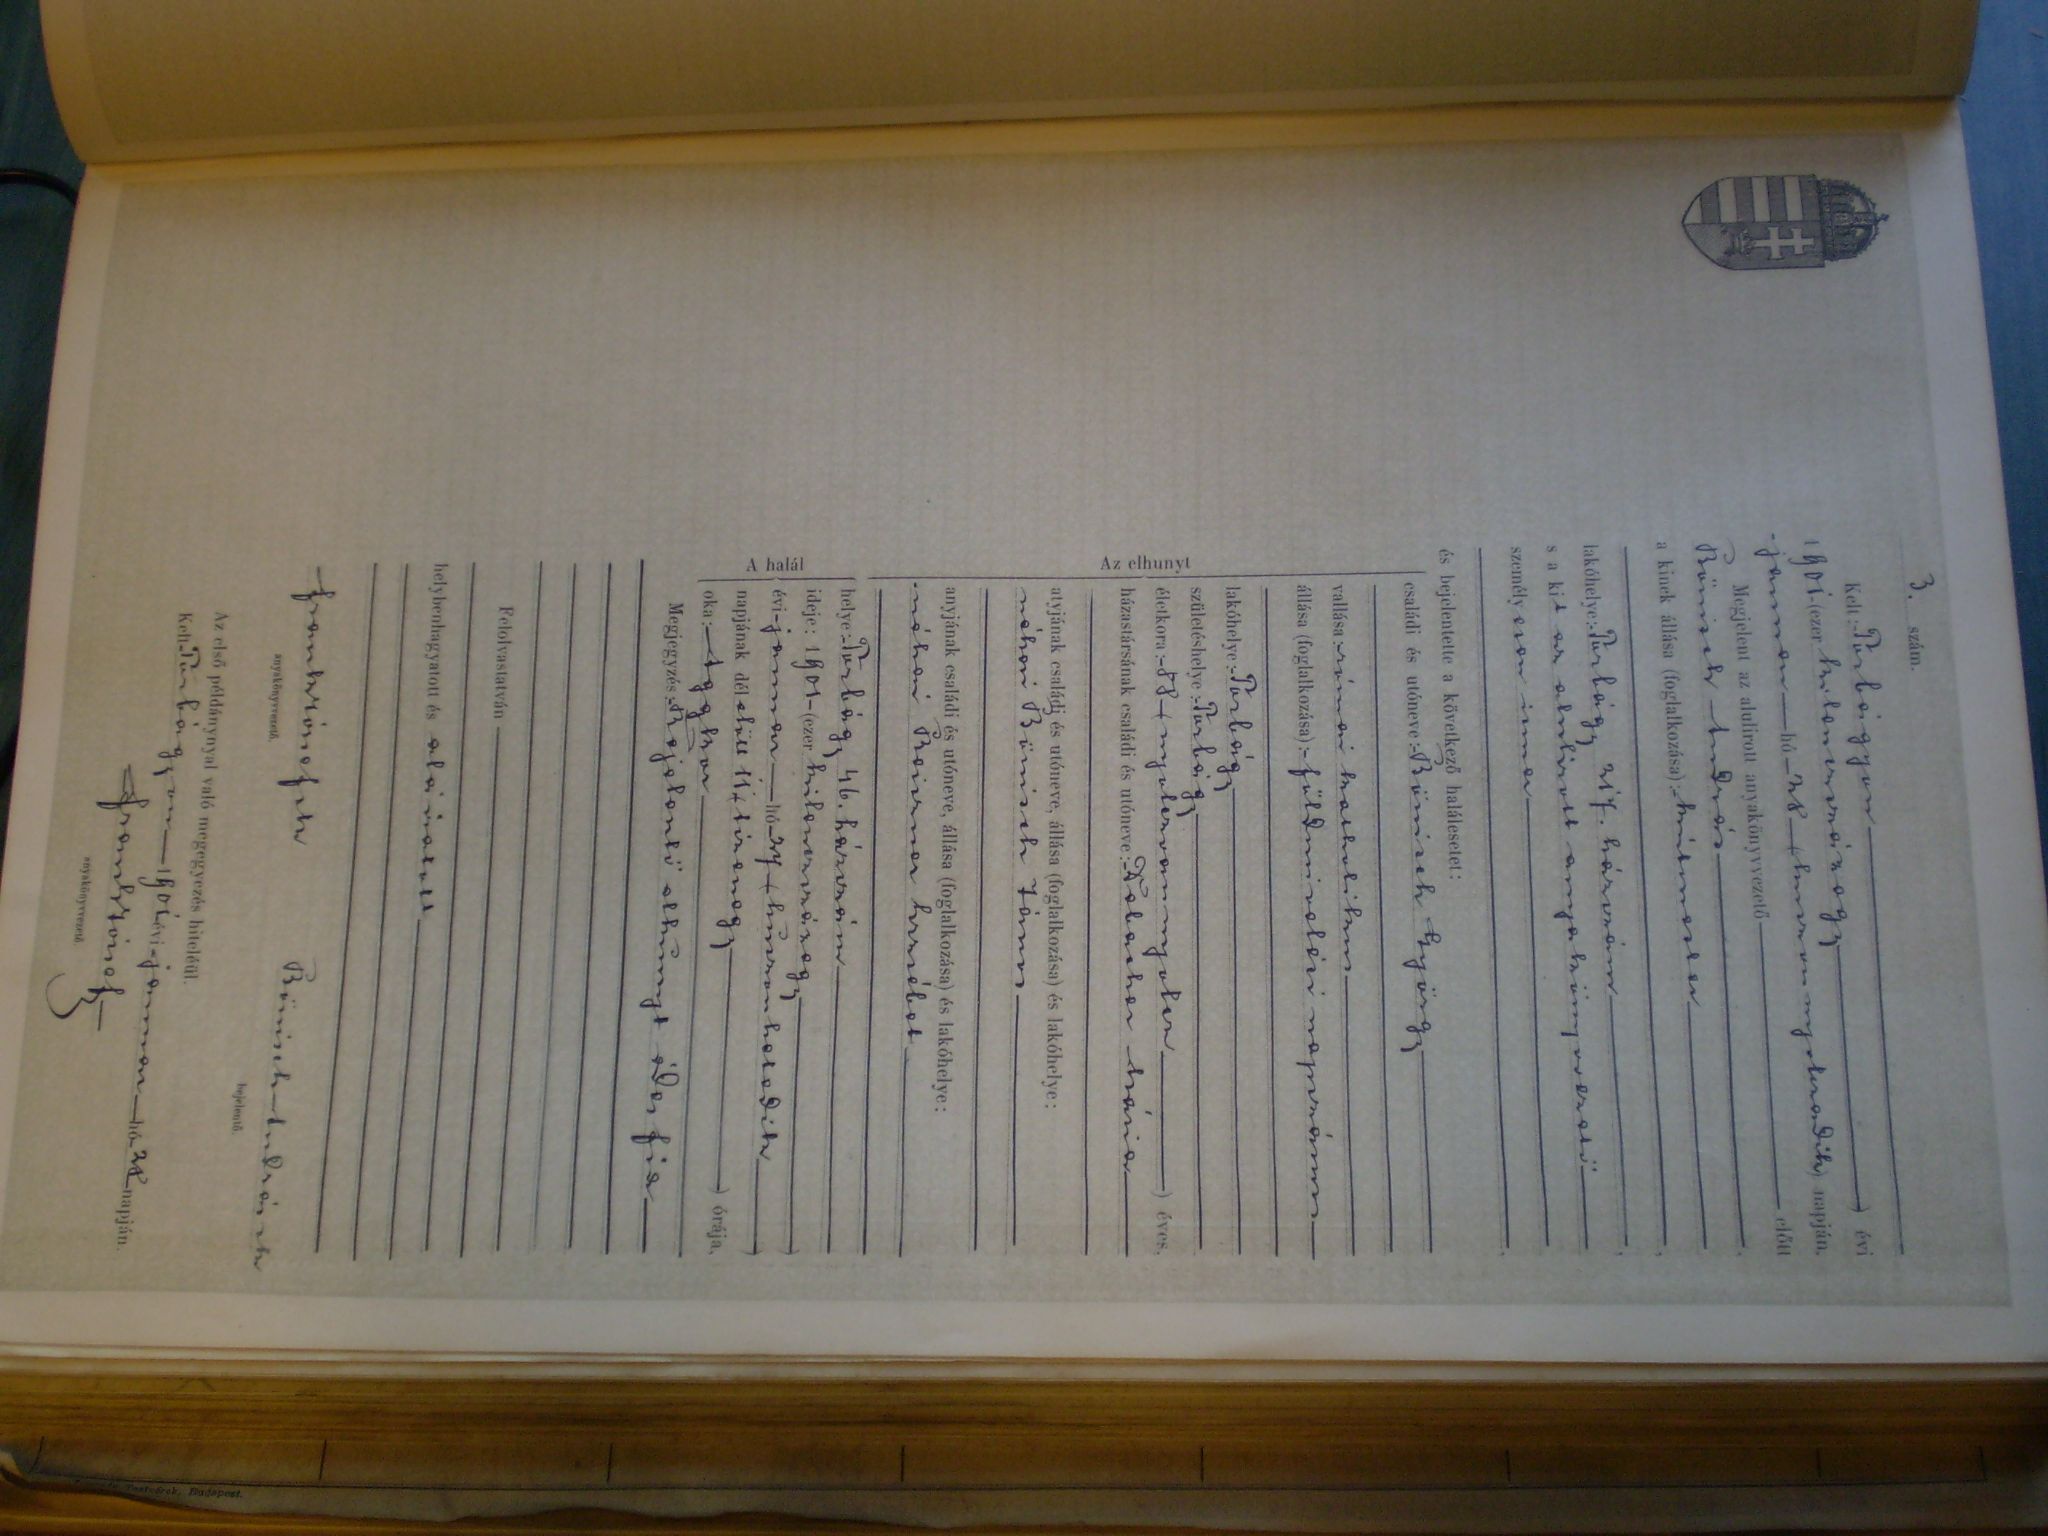 3. szám.
Kelt: Torbágyon ) évi
1901 (ezer kilenczszázegy
január hó 28 (huszonnyolczadik) napján,
Megjelent az alulirott anyakönyvvezető előtt
Bönisch András,
a kinek állása (foglalkozása): kőmüves,
lakóhelye: Torbágy 217. házszám,
s a kit az alulirott anyakönyvvezető
személyesen ismer,
és bejelentette a következő halálesetet:
Az elhunyt
családi és utóneve: Bönisch György
vallása: római katholikus
állása (foglalkozása): földmivelési napszámos
lakóhelye: Torbágy
születéshelye: Torbágy
életkora: 88 (nyolczvannyolcz ) éves.
házastársának családi és utóneve: Mária
atyjának családi és utóneve, állása (foglalkozása) és lakóhelye:
néhai Bönisch János
anyjának családi és utóneve, állása (foglalkozása) és lakóhelye:
néhai Erzsébet
A halál
helye: Torbágy 46. házszám
ideje: 1901 (ezer kilenczszázegy )
évi január hó 27 (huszonhetedik )
napjának dél előtt 11 (tizenegy ) órája.
oka: Aggkor
Megjegyzés: Bejelentő elhunyt édes fia
Felolvastatván
helybenhagyatott és aláiratott
anyakönyvvezető.
Bönisch András
bejelentő.
Az első példánynyal való megegyezés hiteléül.
Kelt: Torbágyon 1901 évi január hó 28 napján.
anyakönyvvezető.
Testvérek, Budapest.